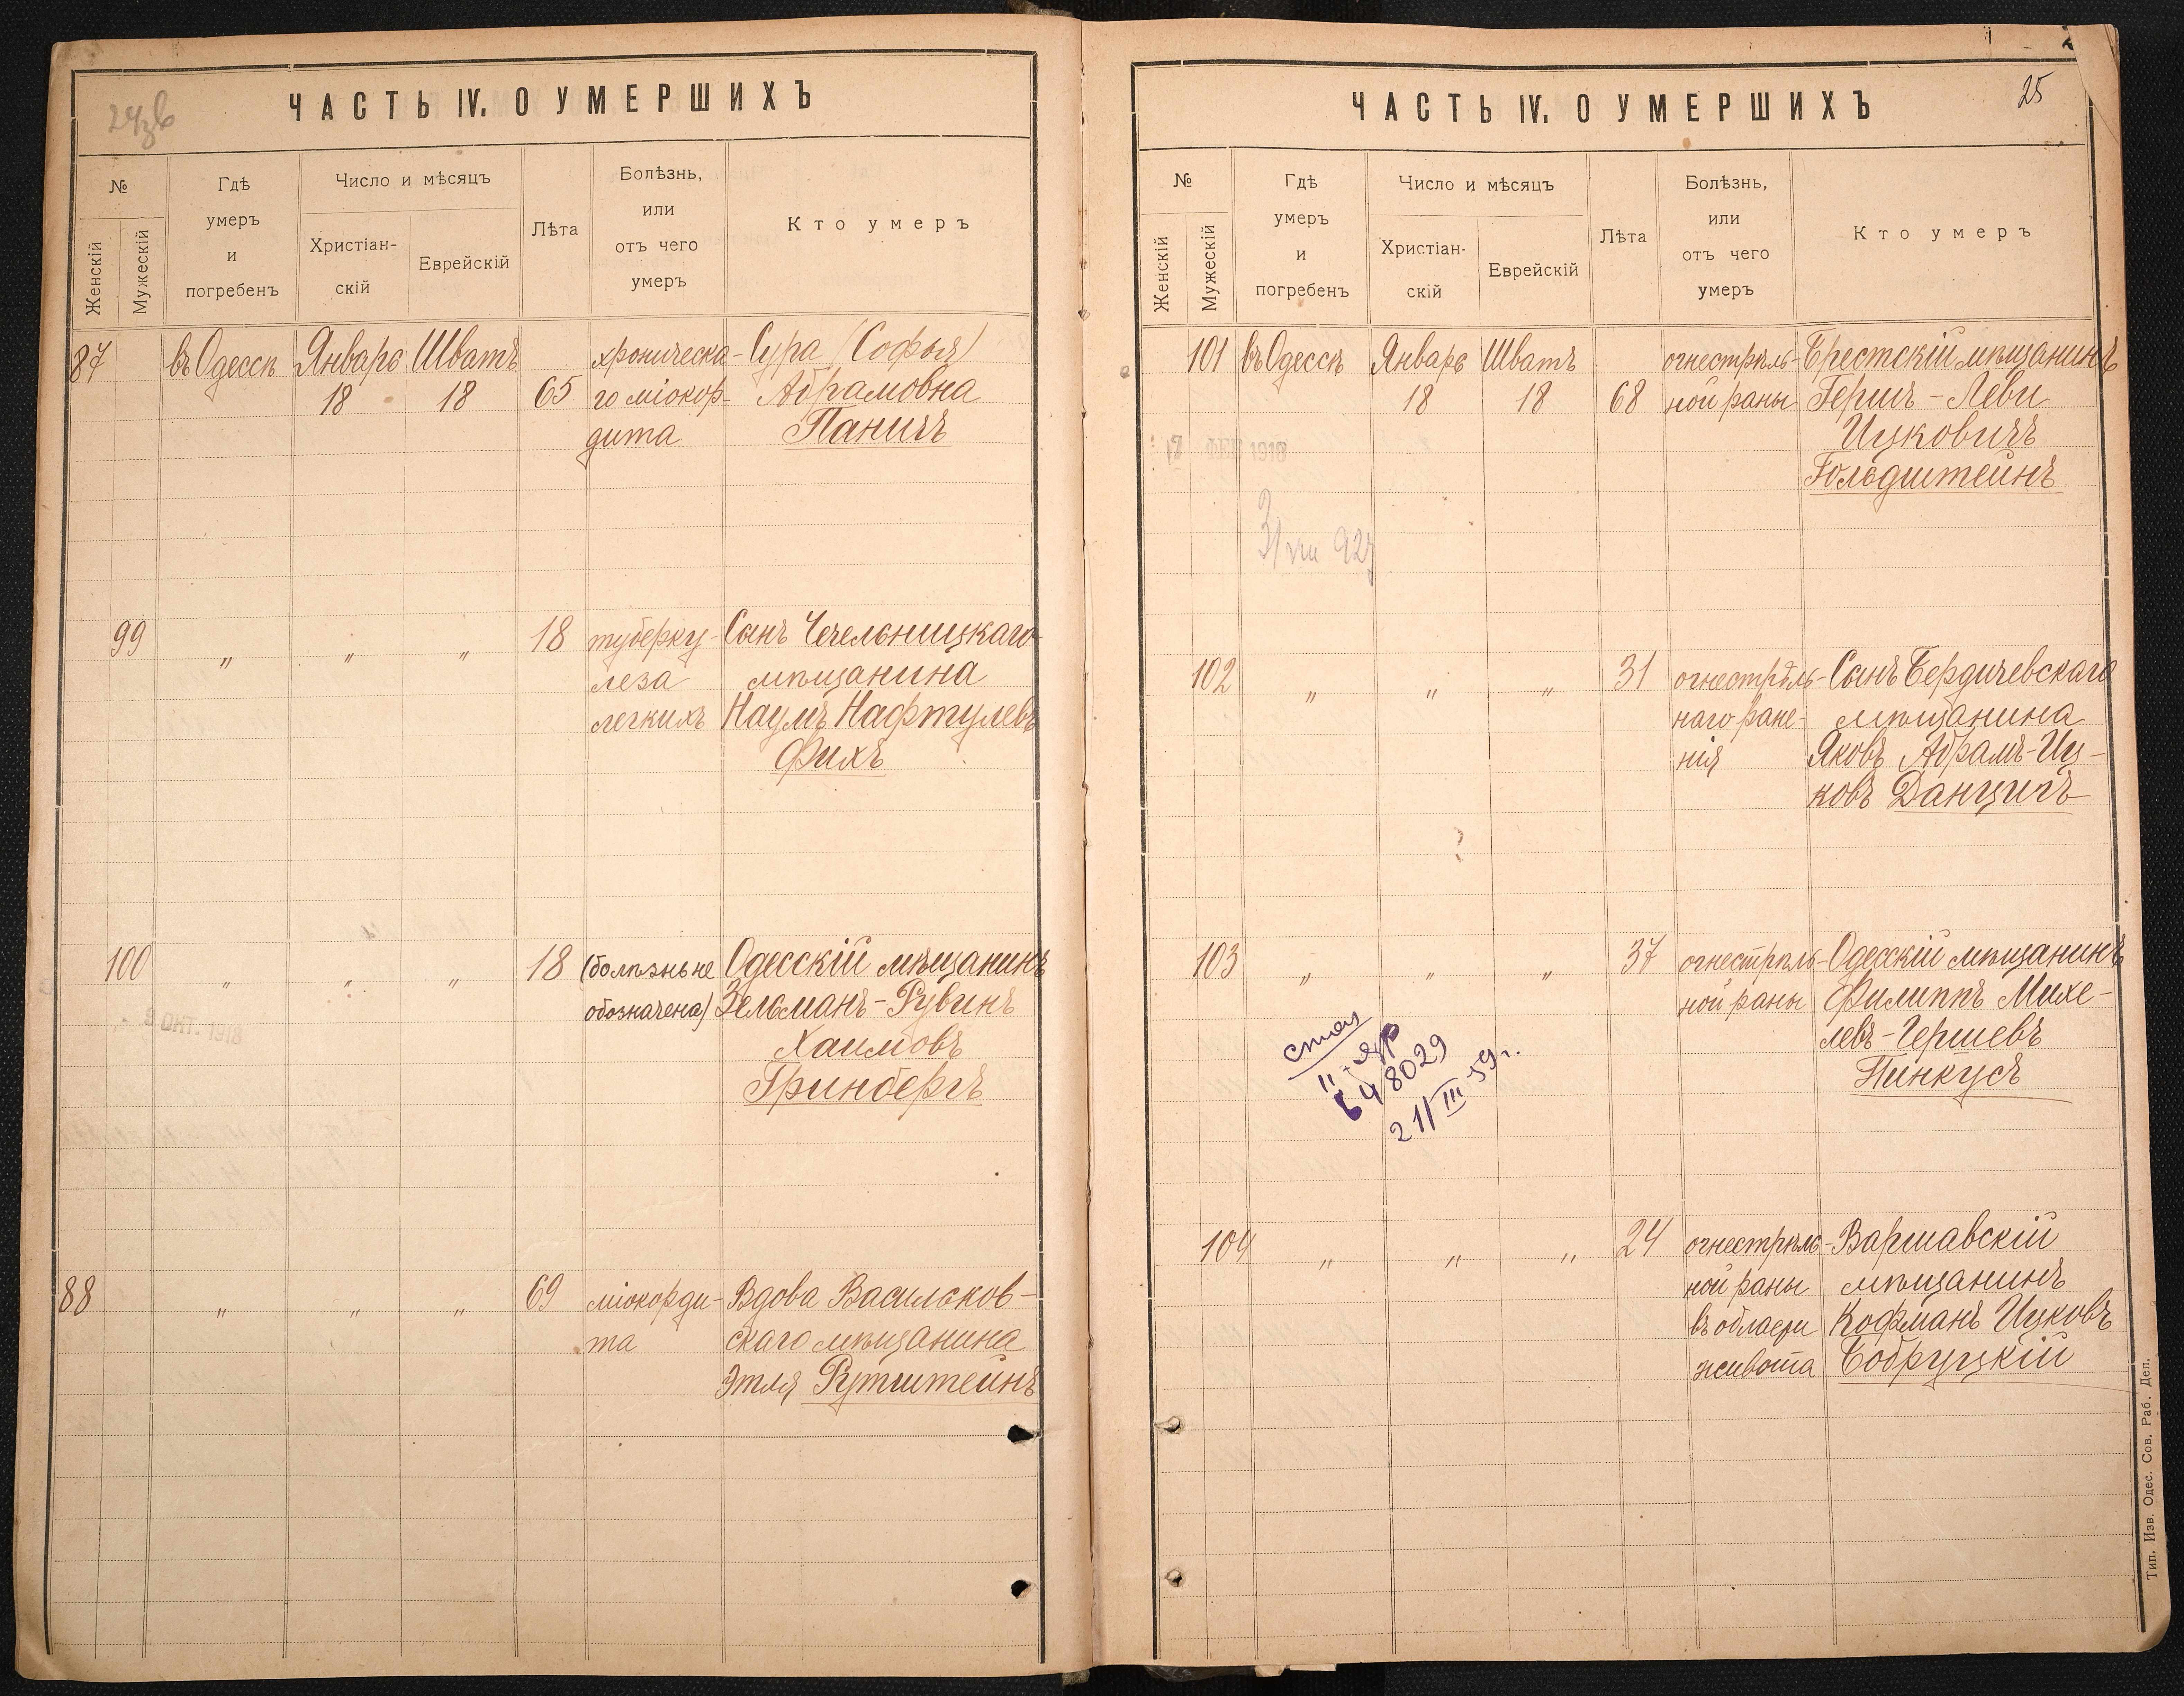 ЧАСТЬ IV. О УМЕРШИХЪ
№
Женскій
Мужескій
Гдѣ
умеръ
и
погребенъ
Число и мѣсяцъ
Христіан-
скій
Еврейскій
Лѣта
Болѣзнь,
или
отъ чего
умеръ
Кто умеръ
87 въ Одессѣ Январь Шватъ хроническа- Сура (Софья)
18 18 65 го міокор- Абрамовна
дита Паничъ
99 „ „ „ 18 туберку- Сынъ Чечельницкаго
леза мѣщанина
легкихъ Наумъ Нафтулевъ
Фихъ
100 „ „ „ 18 (болѣзнь не Одесскій мѣщанинъ
обозначена) Зельманъ-Рувинъ
Хаимовъ
Гринбергъ
ОКТ. 1918
88 „ „ „ 69 міокорди- Вдова Васильков-
та скаго мѣщанина
Этля Рутштейнъ
ЧАСТЬ IV. О УМЕРШИХЪ
25
№
Женскій
Мужескій
Гдѣ
умеръ
и
погребенъ
Число и мѣсяцъ
Христіан-
скій
Еврейскій
Лѣта
Болѣзнь,
или
отъ чего
умеръ
Кто умеръ
101 въ Одессѣ Январь Шватъ огнестрѣль- Брестскій мѣщанинъ
18 18 68 ной раны Гершъ-Леви
Ицковичъ
Гольдштейнъ
1918
102 „ „ „ 31 огнестрѣль- Сынъ Бердичевскаго
наго ране- мѣщанина
нія Яковъ Абрамъ-Иц-
ковъ Данцигъ
?
103 „ „ „ 37 огнестрѣль- Одесскій мѣщанинъ
ной раны Филиппъ Михе-
левъ-Гершевъ
Пинкусъ
648029
21/III 59 г.
104 „ „ „ 24 огнестрѣль- Варшавскій
ной раны мѣщанинъ
въ области Кофманъ Ицковъ
живота Бобруцкій
Тип. Изв. Одес. Сов. Раб. Деп.